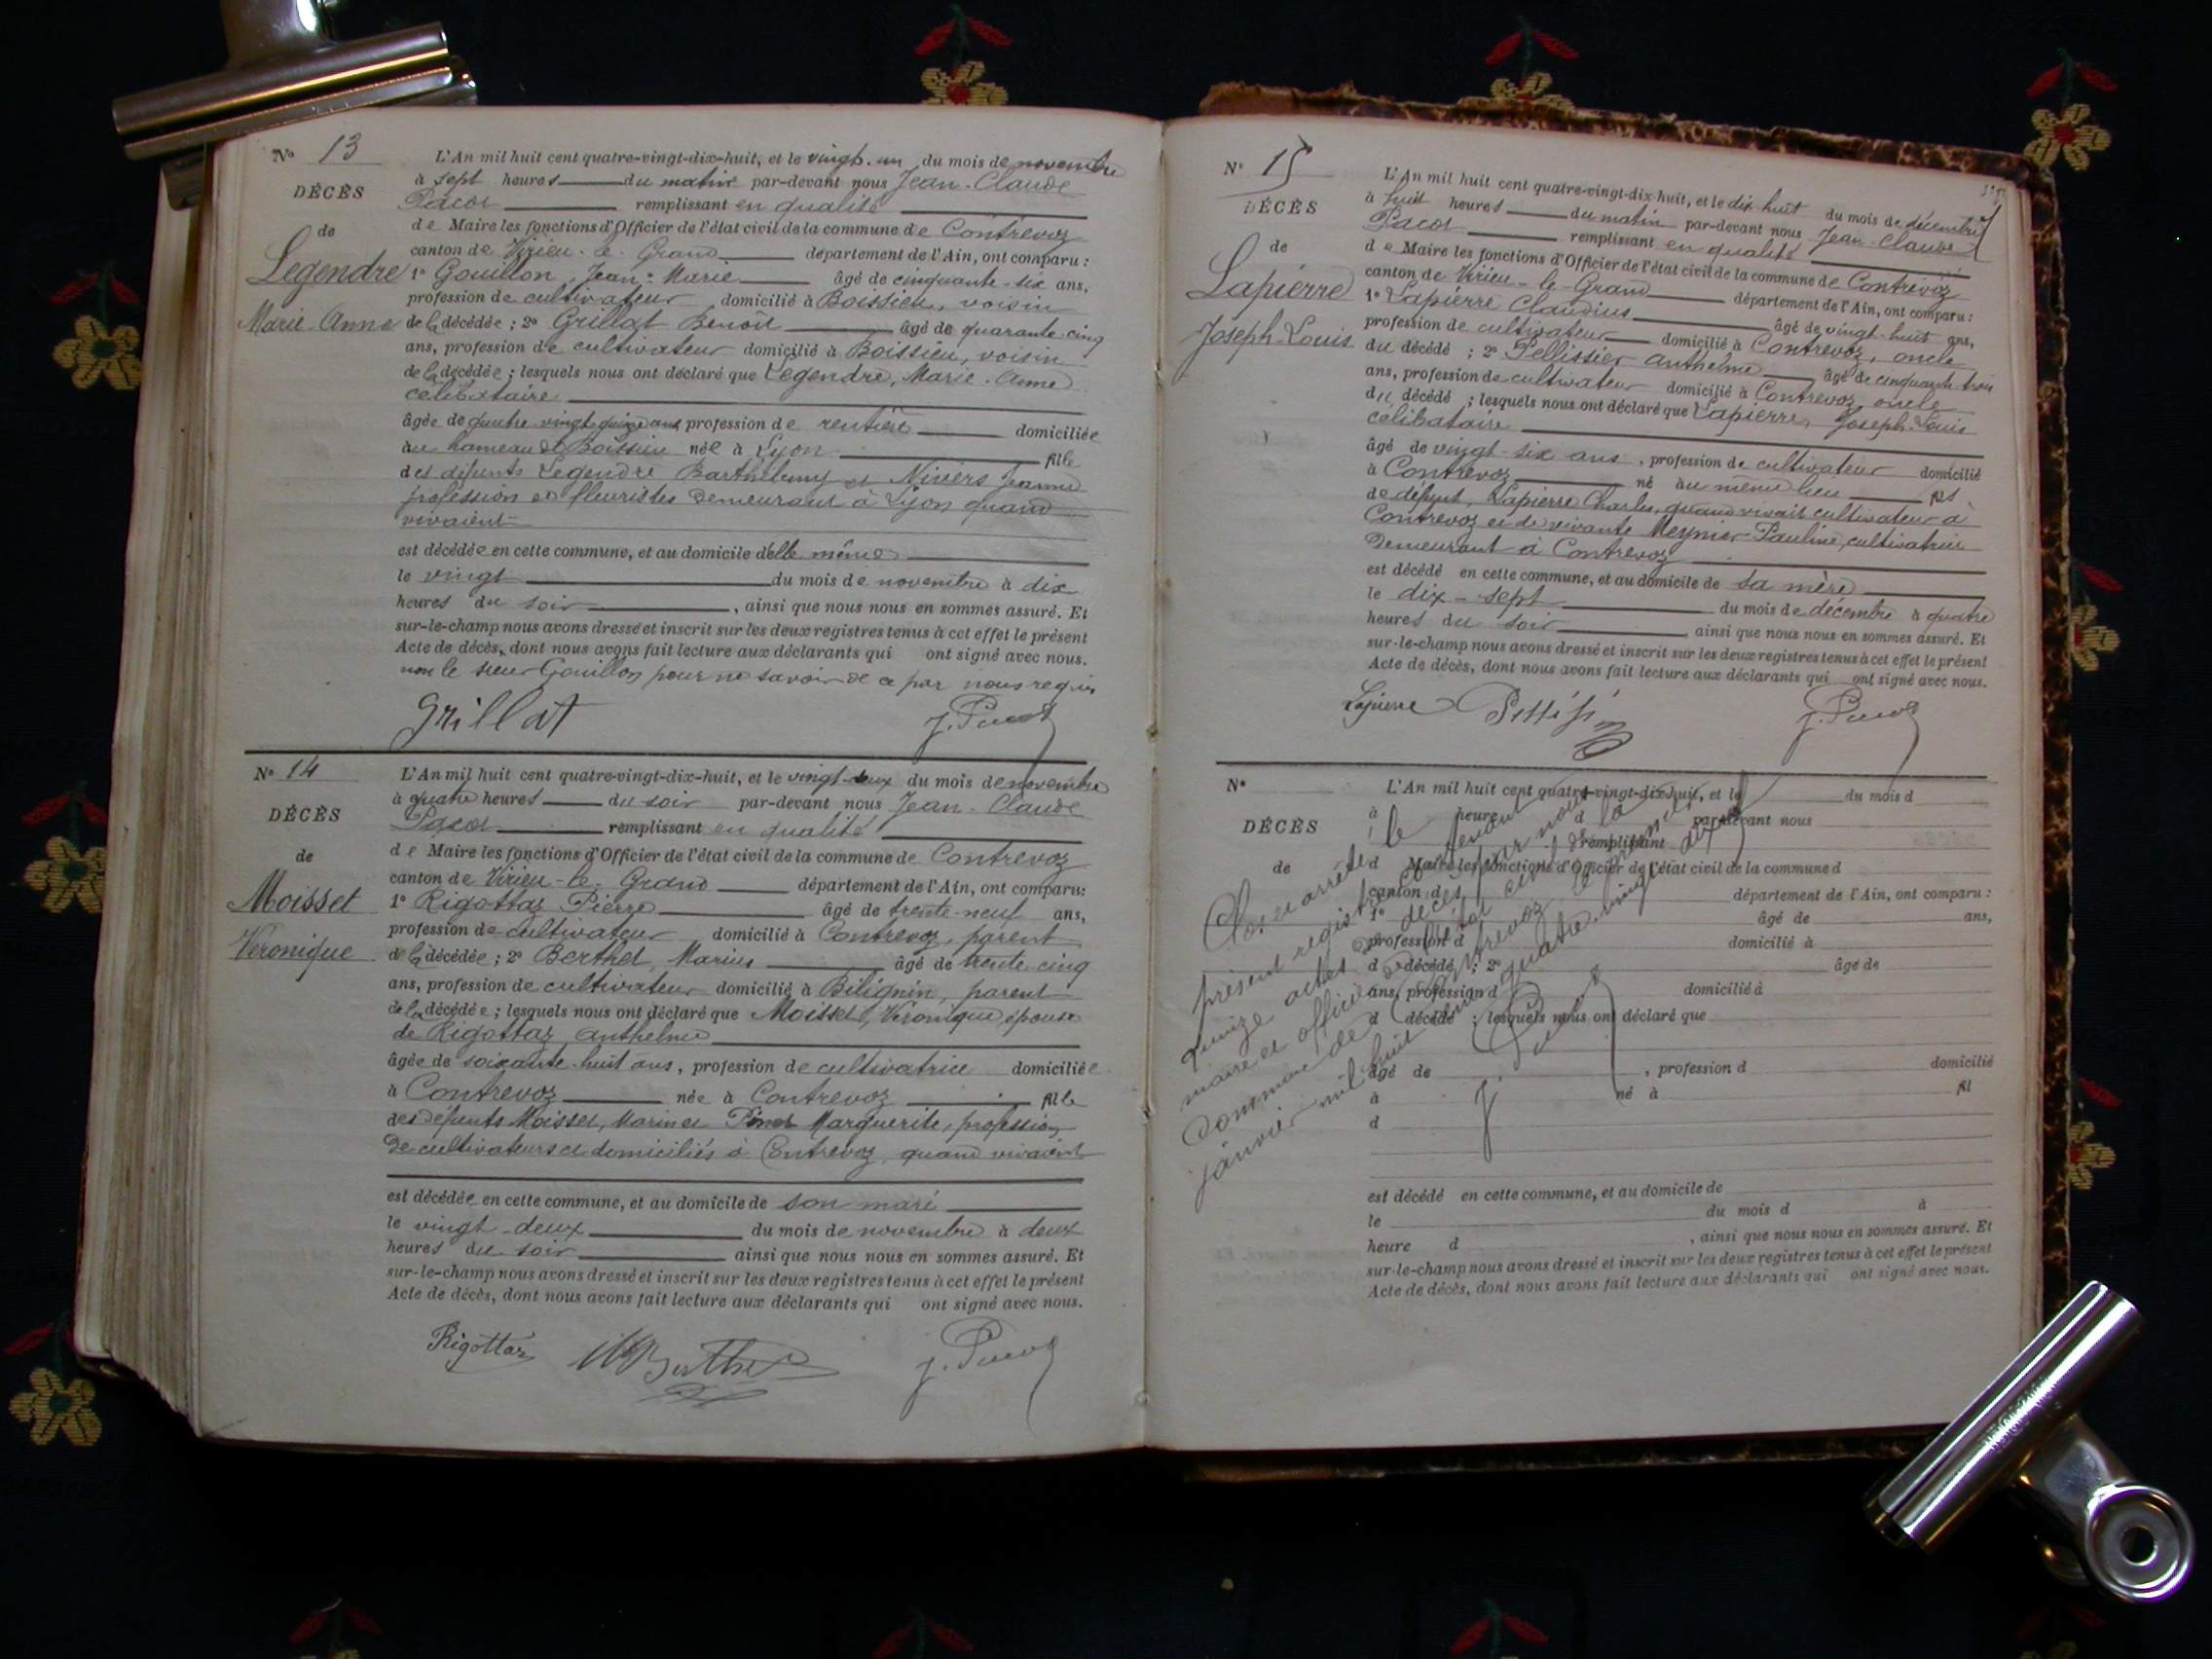 Nº 13
DÉCÈS
de
Legendre
Marie-Anne
L'An mil huit cent quatre-vingt-dix-huit, et le vingt-un du mois de novembre
à sept heures du matin par-devant nous Jean-Claude
Pacoz remplissant en qualité
de Maire les fonctions d'Officier de l'état civil de la commune de Contrevoz
canton de Virieu-le-Grand département de l'Ain, ont comparu :
1º Gouillon, Jean-Marie âgé de cinquante-six ans,
profession de cultivateur domicilié à Boissieu, voisin
de la décédée ; 2º Grillat Benoît âgé de quarante-cinq
ans, profession de cultivateur domicilié à Boissieu, voisin
de la décédée ; lesquels nous ont déclaré que Legendre, Marie-Anne
célibataire
âgée de quatre-vingt-quinze ans profession de rentière domiciliée
au hameau de Boissieu née à Lyon fille
des défunts Legendre Barthélemy et Niviers Jeanne
profession de fleuristes demeurant à Lyon quand
vivaient
est décédée en cette commune, et au domicile d'elle même
le vingt du mois de novembre à dix
heures du soir, ainsi que nous nous en sommes assuré. Et
sur-le-champ nous avons dressé et inscrit sur les deux registres tenus à cet effet le présent
Acte de décès, dont nous avons fait lecture aux déclarants qui ont signé avec nous.
non le sieur Gouillon pour ne savoir de ce par nous requis
Grillat J. Pacoz
Nº 14
DÉCÈS
de
Moisset
Véronique
L'An mil huit cent quatre-vingt-dix-huit, et le vingt-deux du mois de novembre
à quatre heures du soir par-devant nous Jean-Claude
Pacoz remplissant en qualité
de Maire les fonctions d'Officier de l'état civil de la commune de Contrevoz
canton de Virieu-le-Grand département de l'Ain, ont comparu :
1º Rigottaz Pierre âgé de trente-neuf ans,
profession de cultivateur domicilié à Contrevoz, parent
de la décédée ; 2º Berthet, Marius âgé de trente-cinq
ans, profession de cultivateur domicilié à Bilignin, parent
de la décédée ; lesquels nous ont déclaré que Moisset, Véronique épouse
de Rigottaz Anthelme
âgée de soixante-huit ans, profession de cultivatrice domiciliée
à Contrevoz née à Contrevoz fille
des défunts Moisset, Marin et Marguerite, profession
de cultivateurs et domiciliés à Contrevoz, quand vivaient
est décédée en cette commune, et au domicile de son mari
le vingt-deux du mois de novembre à deux
heures du soir ainsi que nous nous en sommes assuré. Et
sur-le-champ nous avons dressé et inscrit sur les deux registres tenus à cet effet le présent
Acte de décès, dont nous avons fait lecture aux déclarants qui ont signé avec nous.
Rigottaz M Berthet J. Pacoz
Nº 15
DÉCÈS
de
Lapierre
Joseph-Louis
L'An mil huit cent quatre-vingt-dix-huit, et le dix-huit du mois de décembre
à huit heures du matin par-devant nous Jean-Claude
Pacoz remplissant en qualité
de Maire les fonctions d'Officier de l'état civil de la commune de Contrevoz
canton de Virieu-le-Grand département de l'Ain, ont comparu :
1º Lapierre Claudius âgé de vingt-huit ans,
profession de cultivateur domicilié à Contrevoz, oncle
du décédé ; 2º Pellissier Anthelme âgé de cinquante-trois
ans, profession de cultivateur domicilié à Contrevoz oncle
du décédé ; lesquels nous ont déclaré que Lapierre, Joseph-Louis
célibataire
âgé de vingt-six ans, profession de cultivateur domicilié
à Contrevoz né au même lieu fils
de défunt, Lapierre Charles, quand vivait cultivateur à
Contrevoz et de vivante Meynier Pauline, cultivatrice
demeurant à Contrevoz
est décédé en cette commune, et au domicile de sa mère
le dix-sept du mois de décembre à quatre
heures du soir ainsi que nous nous en sommes assuré. Et
sur-le-champ nous avons dressé et inscrit sur les deux registres tenus à cet effet le présent
Acte de décès, dont nous avons fait lecture aux déclarants qui ont signé avec nous.
Lapierre Pellissier J. Pacoz
Nº
DÉCÈS
de
L'An mil huit cent quatre-vingt-dix-huit, et le du mois d
à heure d par-devant nous
remplissant
d Maire les fonctions d'Officier de l'état civil de la commune d
canton d département de l'Ain, ont comparu :
1º âgé de ans,
profession d domicilié à
d décédé ; 2º âgé de
ans, profession d domicilié à
d décédé ; lesquels nous ont déclaré que
âgé de , profession d domicilié
à né à fil
d
est décédé en cette commune, et au domicile de
le du mois d à
heure d , ainsi que nous nous en sommes assuré. Et
sur-le-champ nous avons dressé et inscrit sur les deux registres tenus à cet effet le présent
Acte de décès, dont nous avons fait lecture aux déclarants qui ont signé avec nous.
Clos et arrêté le
présent registre contenant
quinze actes de décès par nous
maire et officier de l'état civil de la
commune de Contrevoz le premier
janvier mil huit cent quatre-vingt-dix-neuf
J. Pacoz